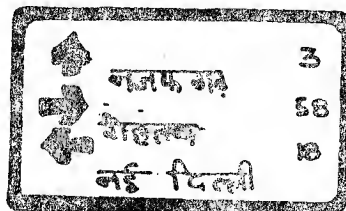 नजफगढ़ 3
रोहतक 58
नई दिल्ली 18